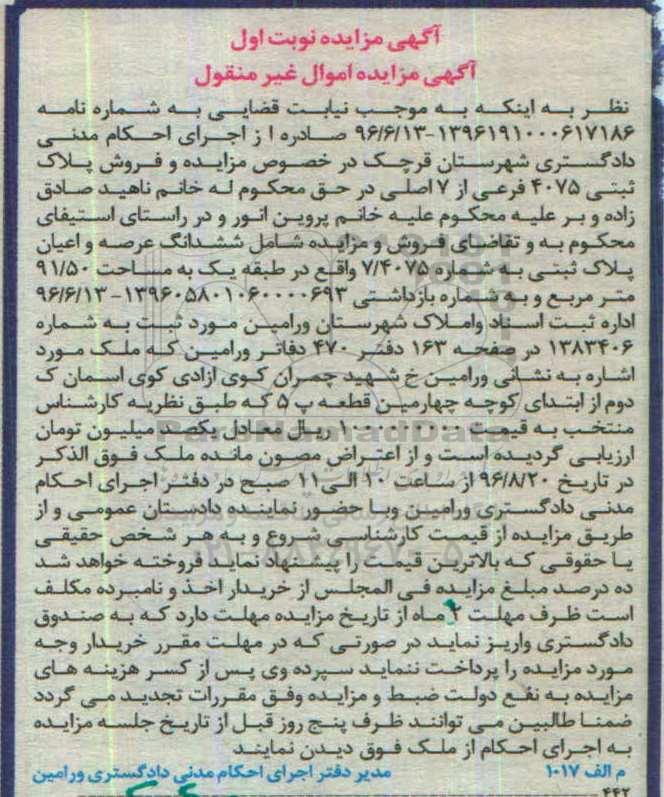 آگهی مزایده نوبت اول
آگهی مزایده اموال غیر منقول
نظر به اینکه به موجب نیابت قضایی به شماره نامه
۱۳۹۶۱۹۱۰۰۰۶۱۷۱۸۶-۹۶/۶/۱۳ صادره ا ز اجرای احکام مدنی
دادگستری شهرستان قرچک در خصوص مزایده و فروش پلاک
ثبتی ۴۰۷۵ فرعی از ۷ اصلی در حق محکوم له خانم ناهید صادق
زاده و بر علیه محکوم علیه خانم پروین انور و در راستای استیفای
محکوم به و تقاضای فروش و مزایده شامل ششدانگ عرصه و اعیان
پلاک ثبتی به شماره ۷/۴۰۷۵ واقع در طبقه یک به مساحت ۹۱/۵۰
متر مربع و به شماره بازداشتی ۱۳۹۶۰۵۸۰۱۰۶۰۰۰۰۶۹۳-۹۶/۶/۱۳
اداره ثبت اسناد واملاک شهرستان ورامین مورد ثبت به شماره
۱۳۸۳۴۰۶ در صفحه ۱۶۳ دفتر ۴۷۰ دفاتر ورامین که ملک مورد
اشاره به نشانی ورامین خ شهید چمران کوی ازادی کوی اسمان ک
دوم از ابتدای کوچه چهارمین قطعه پ ۵ که طبق نظریه کارشناس
منتخب به قیمت ۱۰۰۰۰۰۰۰۰۰ ریال معادل یکصد میلیون تومان
ارزیابی گردیده است و از اعتراض مصون مانده ملک فوق الذکر
در تاریخ ۹۶/۸/۲۰ از ساعت ۱۰ الی ۱۱ صبح در دفتر اجرای احکام
مدنی دادگستری ورامین وبا حضور نماینده دادستان عمومی و از
طریق مزایده از قیمت کارشناسی شروع و به هر شخص حقیقی
یا حقوقی که بالاترین قیمت را پیشنهاد نماید فروخته خواهد شد
ده درصد مبلغ مزایده فی المجلس از خریدار اخذ و نامبرده مکلف
است ظرف مهلت ماه از تاریخ مزایده مهلت دارد که به صندوق
دادگستری واریز نماید در صورتی که در مهلت مقرر خریدار وجه
مورد مزایده را پرداخت ننماید سپرده وی پس از کسر هزینه های
مزایده به نفع دولت ضبط و مزایده وفق مقررات تجدید می گردد
ضمنا طالبین می توانند ظرف پنج روز قبل از تاریخ جلسه مزایده
به اجرای احکام از ملک فوق دیدن نمایند
م الف ۱۰۱۷ مدیر دفتر اجرای احکام مدنی دادگستری ورامین
۴۴۲
ParsNamadData